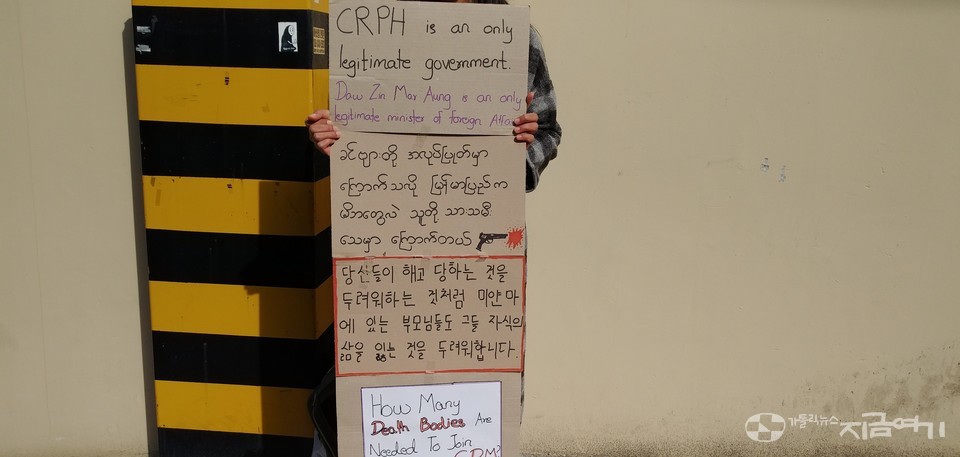 CRPH is an only
legitimate government.
Daw Zin Mar Aung is an only
legitimate minister of foreign Affai
ခင်ဗျားတို့ အလုပ်ပြုတ်မှာ
ကြောက်သလို မြန်မာပြည်က
မိဘတွေလဲ သူတို့ သားသမီး
သေမှာ ကြောက်တယ်
당신들이 해고 당하는 것을
두려워하는 것처럼 미얀마
에 있는 부모님들도 그들 자식의
삶을 잃는 것을 두려워합니다.
How Many
Death Bodies Are
Needed To Join
CDM?
가톨릭뉴스 지금여기